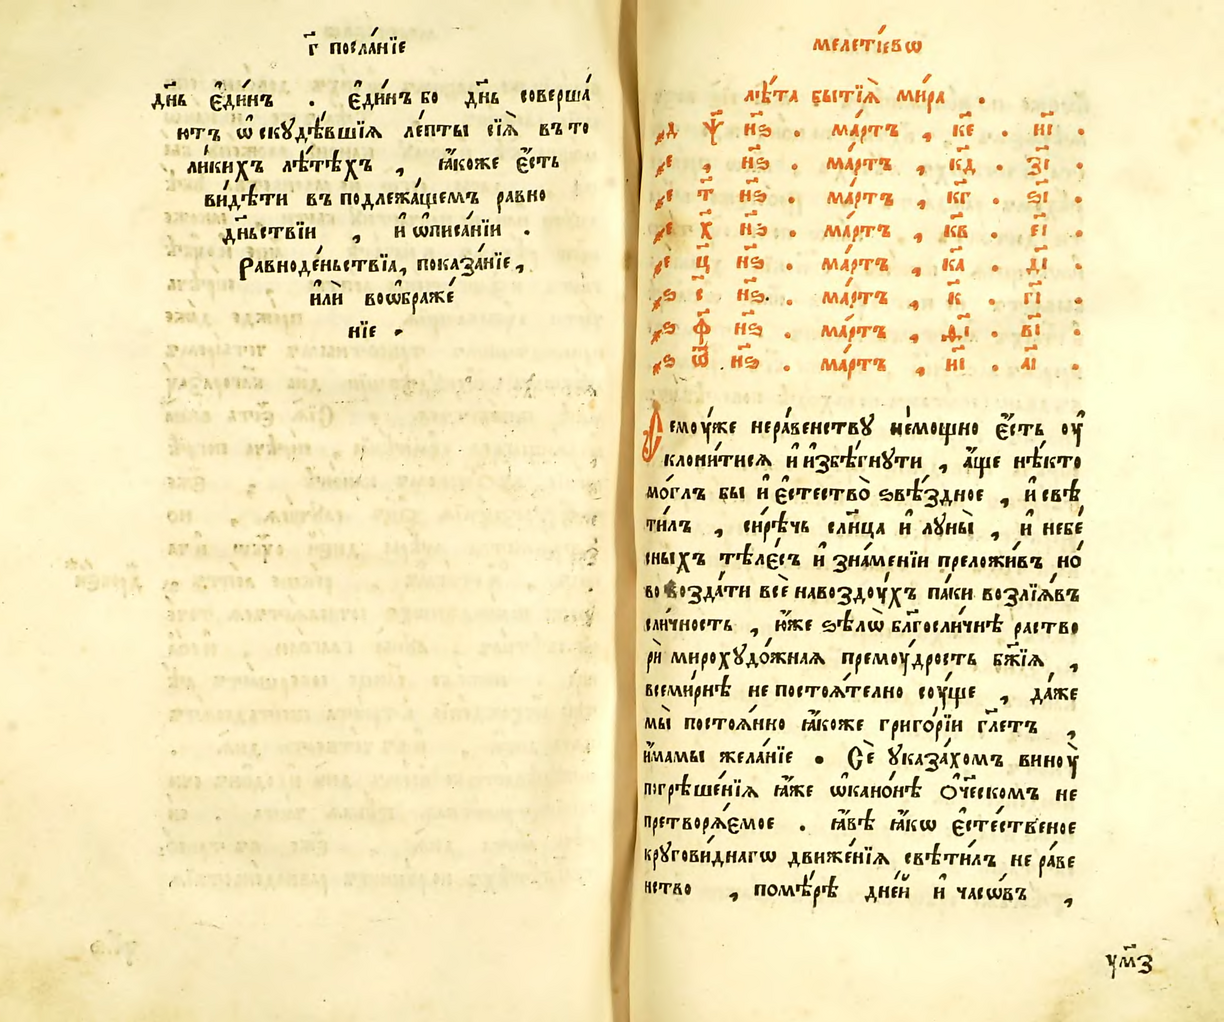 г҃ посла́нїе
дн҃ь є҆ди́нъ . є҆ди́нъ бо дн҃ь соверша́
ютъ ѡ҆скꙋдѣ́вшїѧ ле́пты сїѧ̀ въ то
ли́кихъ лѣ́тѣхъ , ꙗ҆́коже є҆́сть
ви́дѣти въ подлежа́щемъ равно
дн҃ьствїи , и҆ ѡ҆писа́нїи .
Равноде́ньствїа, показа́нїе,
и҆лѝ воѡ҆браже́
нїе .
меле́тїевѡ
лѣ́та бытїѧ̀ ми́ра .
҂д ѱ҃ нѕ҃ . ма́ртъ , ке҃ . ни҃ .
҂е , нѕ҃ . ма́ртъ , кд҃ . зі҃ .
҂е т҃ нѕ҃ . ма́ртъ , кг҃ . ѕі҃ .
҂е х҃ нѕ҃ . ма́ртъ , кв҃ . еі҃ .
҂е ц҃ нѕ҃ . ма́ртъ , ка҃ . ді҃ .
҂ѕ с҃ нѕ҃ . ма́ртъ , к҃ . гі҃ .
҂ѕ ф҃ нѕ҃ . ма́ртъ , ѳі҃ . ві҃ .
҂ѕ ѿ҃ нѕ҃ . ма́ртъ , ні҃ . аі҃ .
Семоу́же нера́венствꙋ не́мощно є҆́сть оу҆
клони́тисѧ и҆ и҆збѣ́гнꙋти , а҆́ще нѣ́кто
мо́глъ бы и҆ є҆стество̀ ѕвѣ́здное , и҆ свѣ
ти́лъ , си́рѣчь сл҃нца и҆ лꙋны̀ , и҆ небе́
сныхъ тѣле́съ и҆ зна́менїи преложи́въ но́
во возда́ти всѐ на воздоу́хъ па́ки возлїѧ́въ
сли́чность , ю҆́же ѕѣлѡ̀ бл҃госли́чнѣ раство
рѝ мирохꙋдо́жнаѧ премоу́дрость бж҃їѧ ,
всеми́рнѣ не постоѧ́телно соу́ще , да́же
мы̀ постоѧ́нно ꙗ҆́коже григо́рїи гл҃етъ ,
и҆́мамы жела́нїе . Сѐ ᲂуказа́хомъ виноу̀
погрѣше́нїѧ ꙗ҆́же ѡ҆ кано́нѣ ѻ҆ч҃ескомъ не
претворѧ́емое . ꙗ҆́вѣ ꙗ҆́кѡ є҆сте́ственое
крꙋгови́днагѡ движе́нїѧ свѣти́лъ не ра́ве
нство , помѣ́рѣ дне́й и҆ часѡ́въ ,
ум҃з